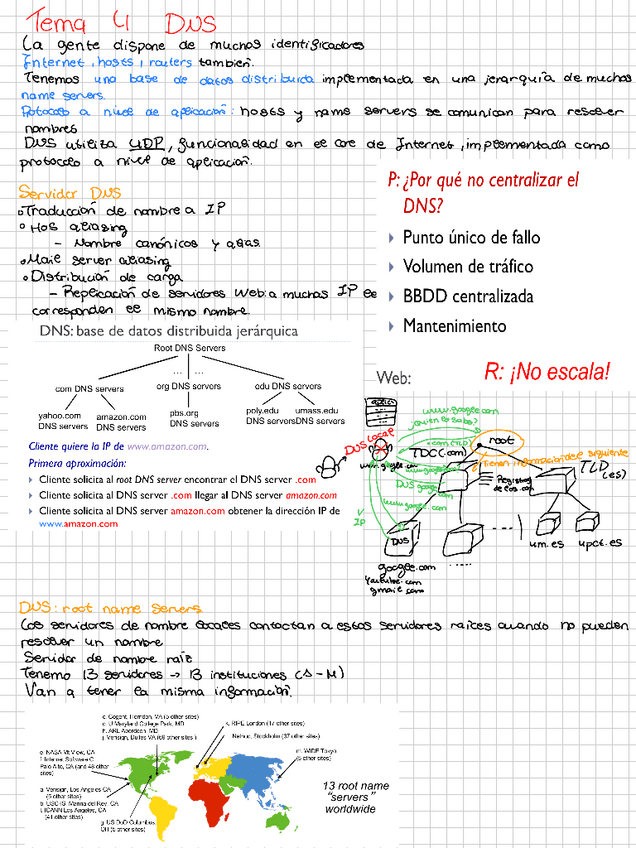 Tema 4 DNS
La gente dispone de muchos identificadores
Internet, hosts, routers también.
Tenemos una base de datos distribuida implementada en una jerarquía de muchos
name servers.
Potocolo a nivel de aplicación: hosts y name servers se comunican para resolver
nombres
DNS utiliza UDP, funcionalidad en el core de Internet, implementada como
protocolo a nivel de aplicación.
Servidor DNS
Traducción de nombre a IP
Hos aliasing
- Nombre canónicos y alias.
Mail server aliasing
Distribución de carga
- Replicación de servidores Web: a muchas IP le
corresponden el mismo nombre.
P: ¿Por qué no centralizar el
DNS?
Punto único de fallo
Volumen de tráfico
BBDD centralizada
Mantenimiento
R: ¡No escala!
DNS: base de datos distribuida jerárquica
Root DNS Servers
... ...
com DNS servers
org DNS servers
edu DNS servers
yahoo.com
DNS servers
amazon.com
DNS servers
pbs.org
DNS servers
poly.edu
DNS servers
umass.edu
DNS servers
Cliente quiere la IP de www.amazon.com.
Primera aproximación:
Cliente solicita al root DNS server encontrar el DNS server .com
Cliente solicita al DNS server .com llegar al DNS server amazon.com
Cliente solicita al DNS server amazon.com obtener la dirección IP de
www.amazon.com
Web:
www.google.com
DNS local
root
TLD
(es)
DNS google
www.google.com
IP
DNS
google.com
youtube.com
gmail.com
um.es
upct.es
DNS: root name servers
Los servidores de nombre locales contactan a estos servidores raíces cuando no pueden
resolver un nombre
Servidor de nombre raíz
Tenemo 13 servidores → 13 instituciones (A - M)
Van a tener la misma información.
c. Cogent, Herndon, VA (5 other sites)
d. U Maryland College Park, MD
h. ARL Aberdeen, MD
j. Verisign, Dulles VA (69 other sites )
k. RIPE London (17 other sites)
i. Netnod, Stockholm (37 other sites)
m. WIDE Tokyo
(5 other sites)
e. NASA Mt View, CA
f. Internet Software C.
Palo Alto, CA (and 48 other
sites)
a. Verisign, Los Angeles CA
(5 other sites)
b. USC-ISI Marina del Rey, CA
l. ICANN Los Angeles, CA
(41 other sites)
g. US DoD Columbus,
OH (5 other sites)
13 root name
“servers”
worldwide